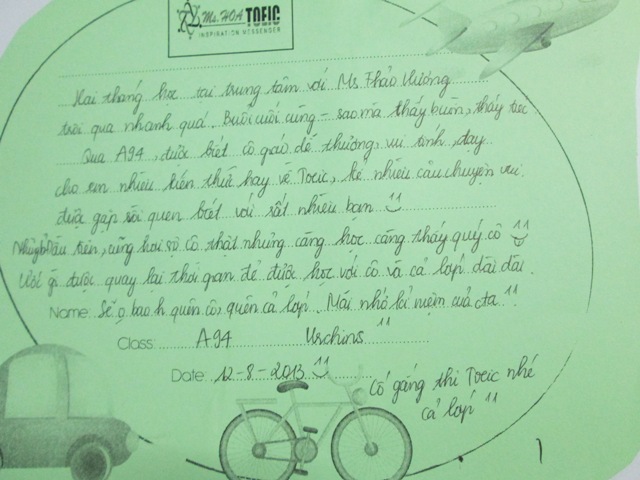 Ms. HOA TOEIC
INSPIRATION MESSENGER
Hai tháng học tại trung tâm với Ms. Thảo Hương
trôi qua nhanh quá. Buổi cuối cùng – sao mà thấy buồn, thấy tiếc
Qua A94, được biết cô giáo dễ thương, vui tính, dạy
cho em nhiều kiến thức hay về Toeic, kể nhiều câu chuyện vui.
được gặp rồi quen biết với rất nhiều bạn
đầu tiên, cũng hơi sợ cô thật nhưng càng học càng thấy quý cô
Ước gì được quay lại thời gian để được học với cô và cả lớp dài dài.
Name: Sẽ o bao h quên cô, quên cả lớp. Mãi nhớ kỉ niệm của cta. ^^
Class: A94 Urchins ^^
Date: 12-8-2013
Cố gắng thi Toeic nhé
cả lớp ^^